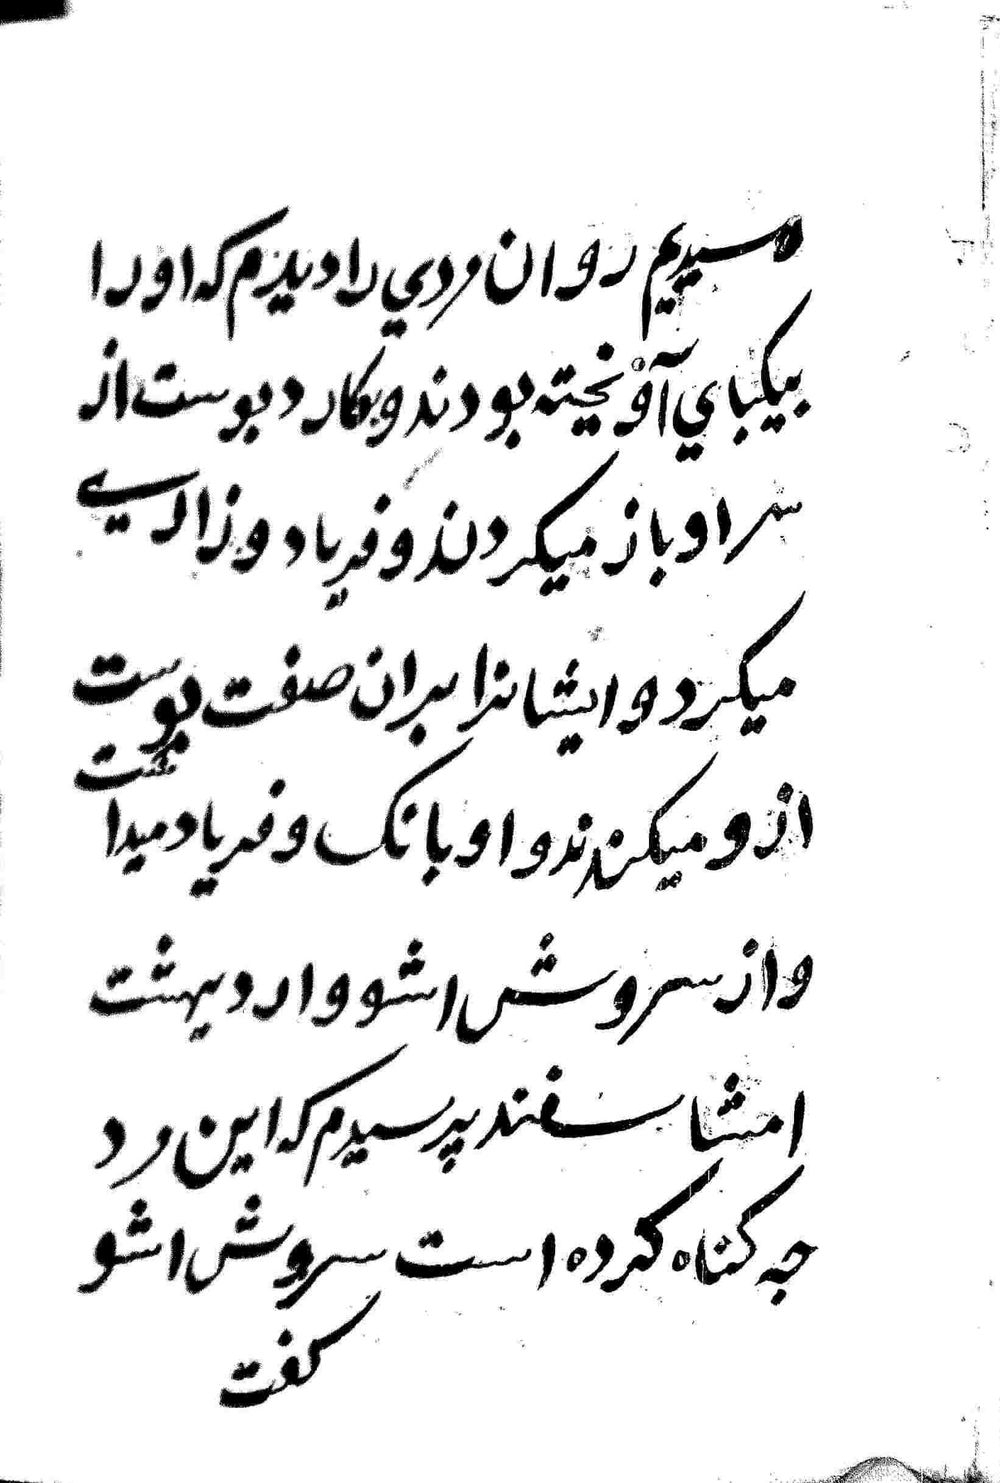 رسیدیم روان مردي را دیدم که اورا
بیکباي آویخته بودند و بکارد بوست از
سر او باز میکردند و فریاد و زاری
میکرد و ایشانرا بران صفت بوست
ازو میکندند و او بانک و فریاد میداشت
و از سروش اشو و اردیبهشت
امشاسفند پرسیدم که این مرد
جه کناه کرده است سروش اشو
کفت